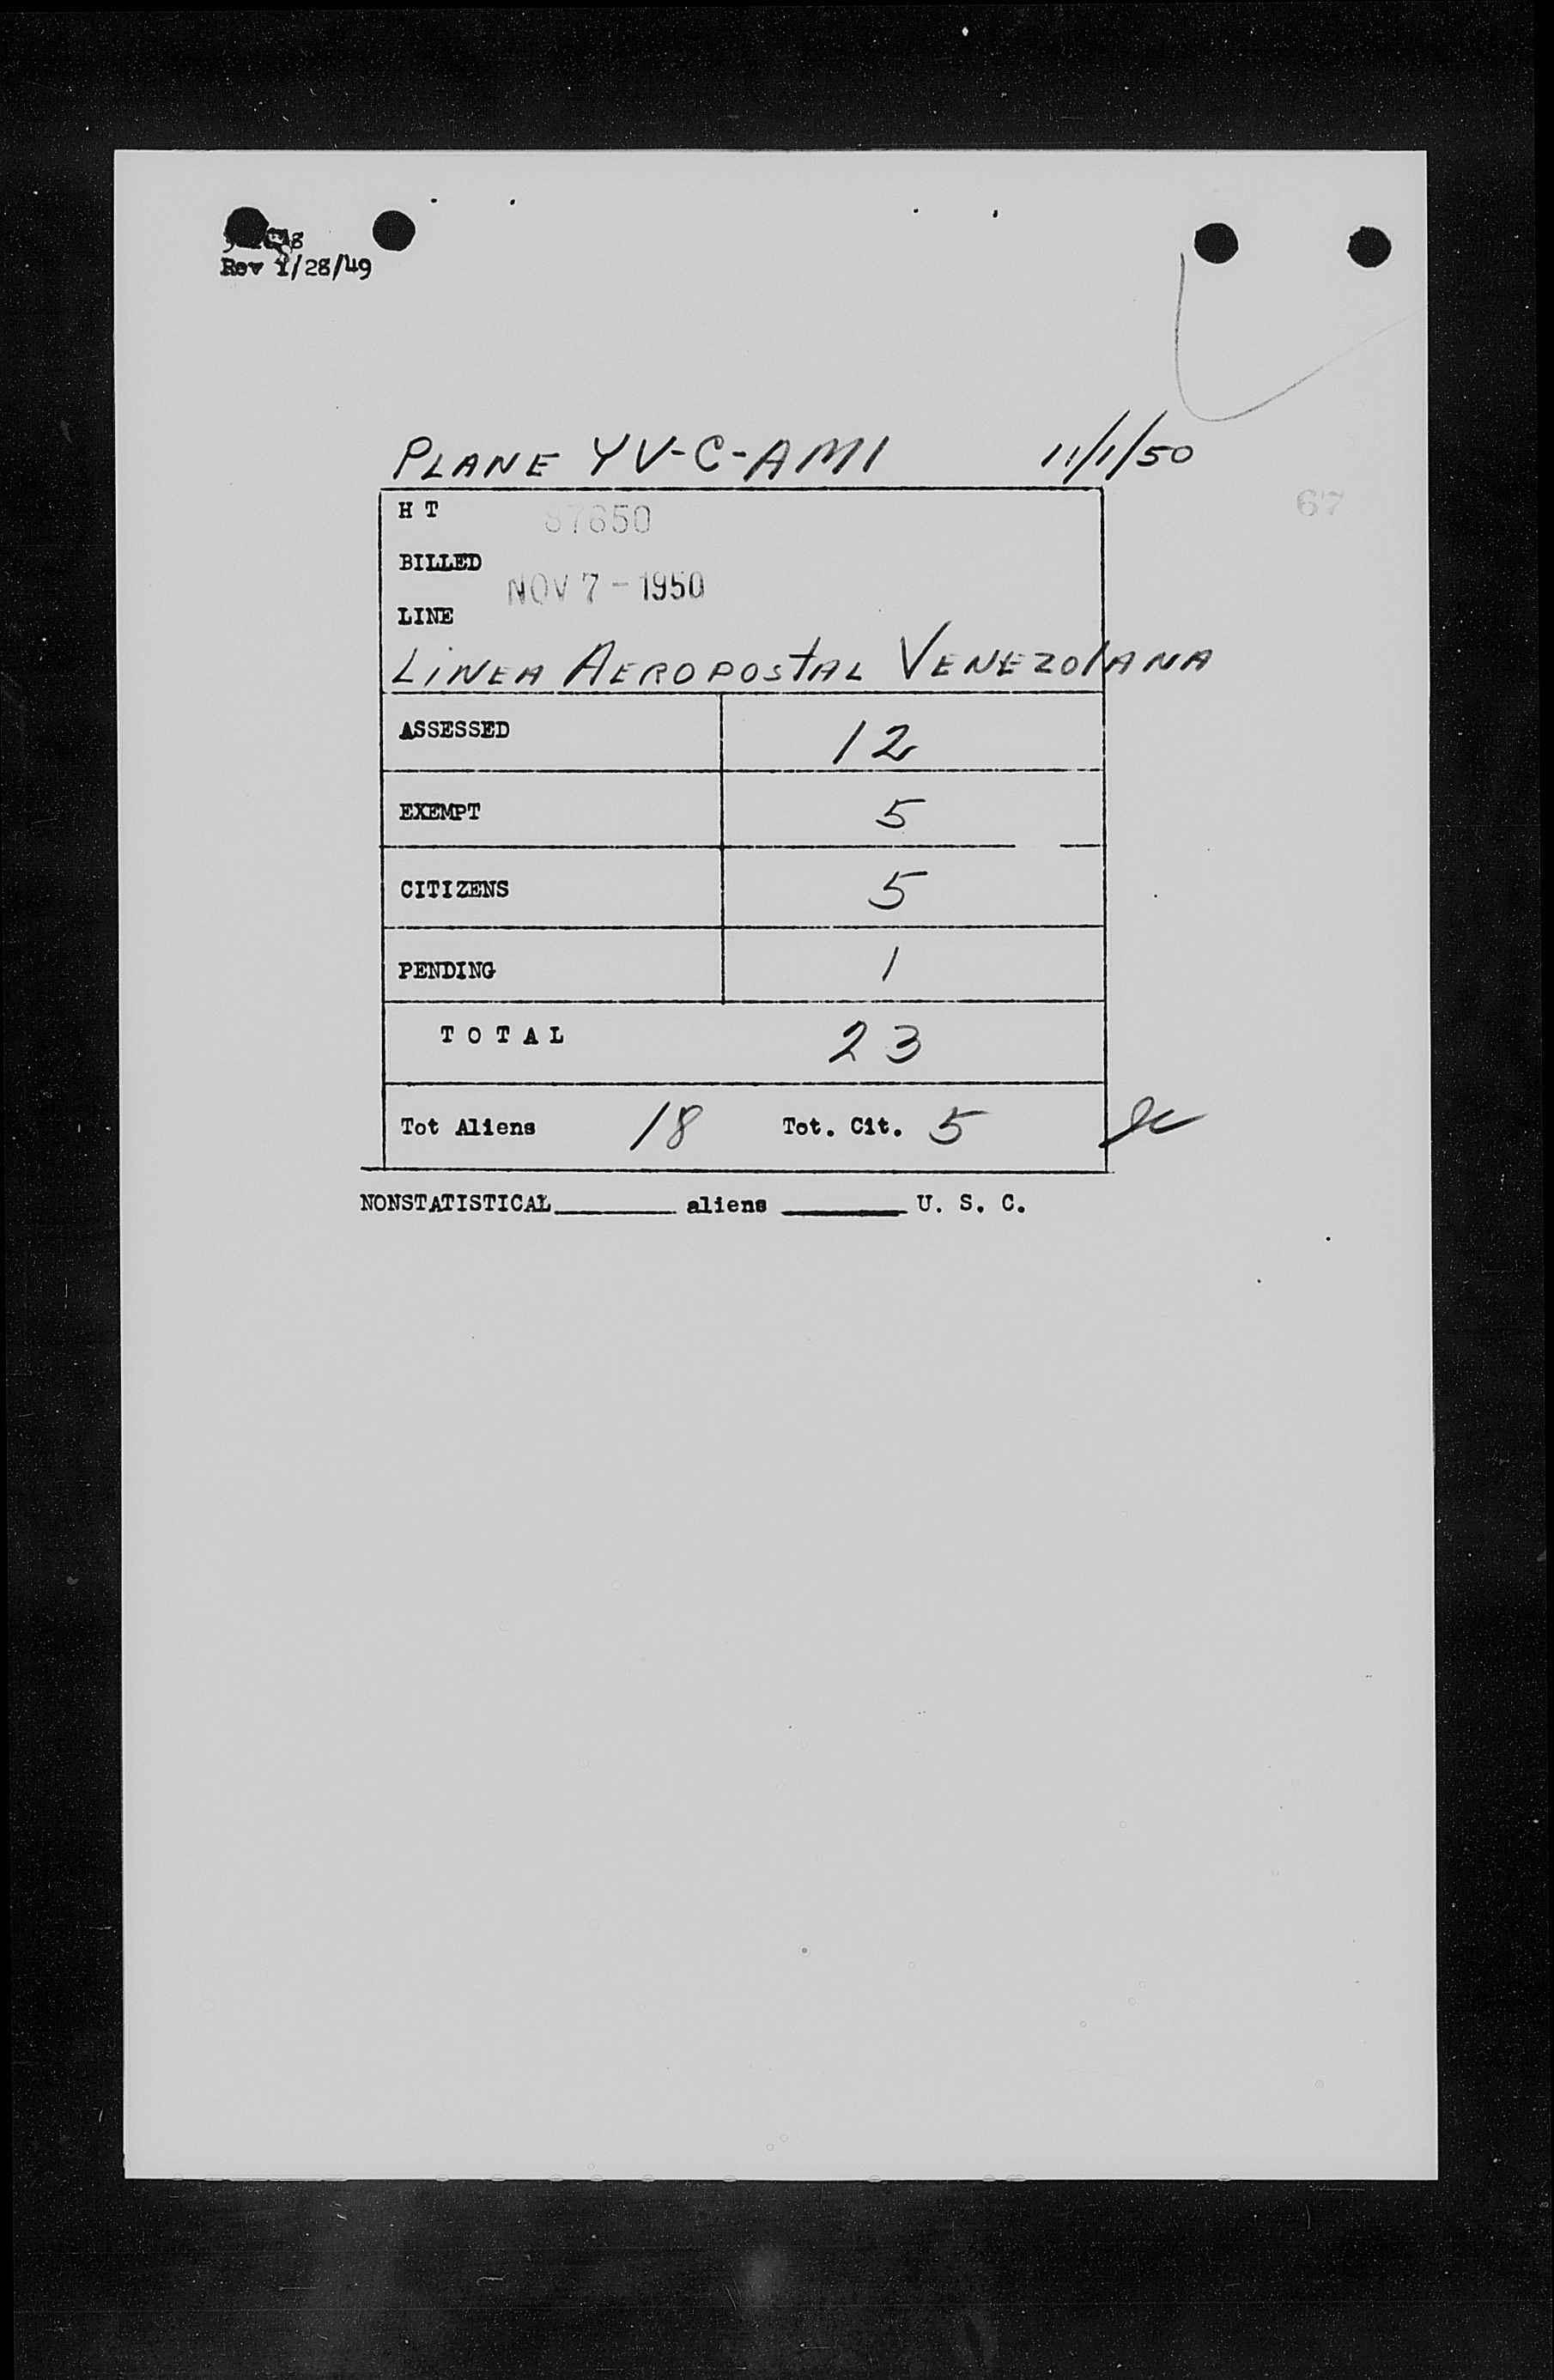 Rev 1/28/49
PLANE YV-C-AMI 11/1/50
H T 87650
67
BILLED
NOV 7 - 1950
LINE
LINEA AEROPOSTAL VENEZOLANA
ASSESSED 12
EXEMPT 5
CITIZENS 5
PENDING 1
TOTAL 23
Tot Aliens 18 Tot. Cit. 5
NONSTATISTICAL________ aliens ________ U. S. C.